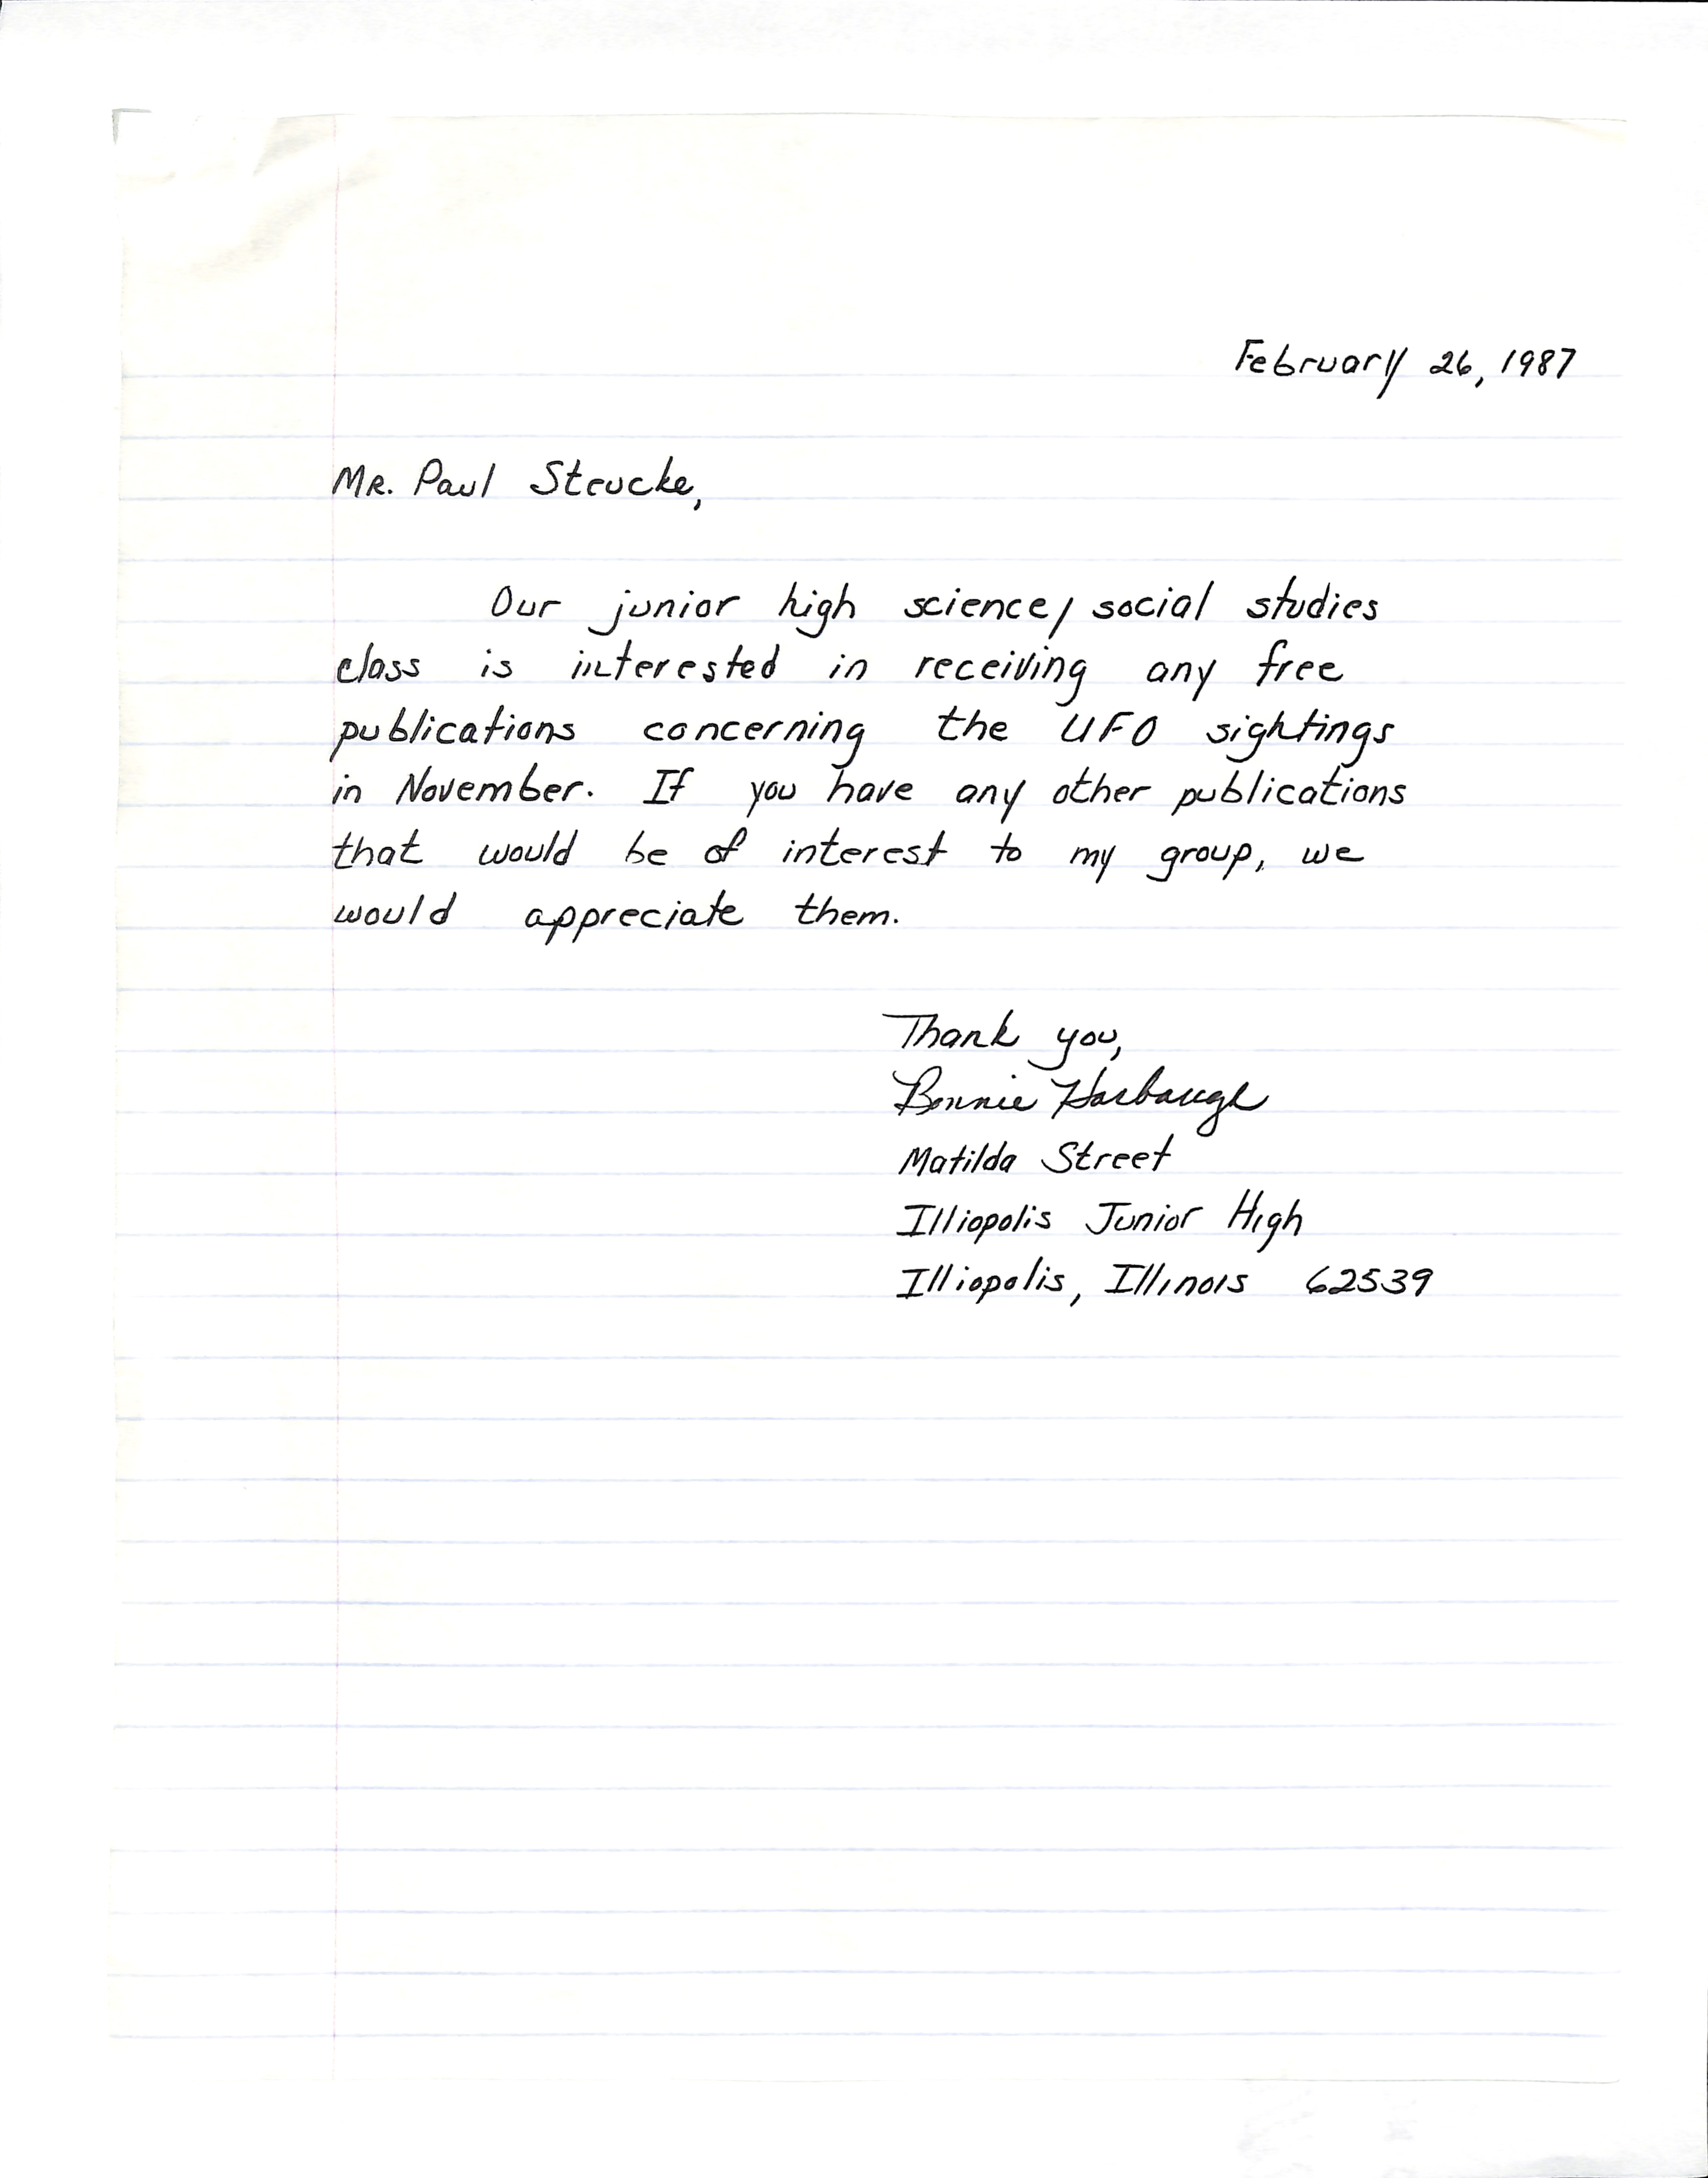 February 26, 1987
Mr. Paul Steucke,
Our junior high science/social studies
class is interested in receiving any free
publications concerning the UFO sightings
in November. If you have any other publications
that would be of interest to my group, we
would appreciate them.
Thank you,
Bonnie Harbaugh
Matilda Street
Illiopolis Junior High
Illiopolis, Illinois 62539